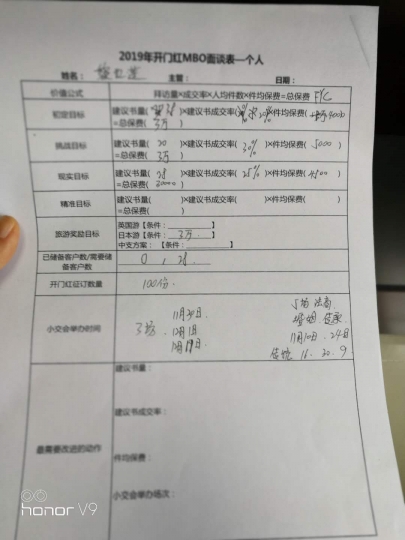 2019年开门红MBO面谈表—个人
姓名： 主管： 日期：
价值公式 拜访量×成交率×人均件数×件均保费=总保费 FYC
初定目标 建议书量( 28 )×建议书成交率( 20% )×件均保费( 4000 )
=总保费( 3万 )
挑战目标 建议书量( 20 )×建议书成交率( 30% )×件均保费( 5000 )
=总保费( 3万 )
现实目标 建议书量( 28 )×建议书成交率( 25% )×件均保费( 4500 )
=总保费( 30000 )
精准目标 建议书量( )×建议书成交率( )×件均保费( )
=总保费( )
旅游奖励目标 英国游【条件： 】
日本游【条件： 3万 】
中支方案： 【条件： 】
已储备客户数/需要储备客户数 0 , 28
开门红征订数量 100份.
小交会举办时间 3场. 11月30日
12月1日
12月19日.
11月10日. 24日
16. 30. 9.
最需要改进的动作 建议书量：
建议书成交率：
件均保费：
小交会举办场次：
honor V9